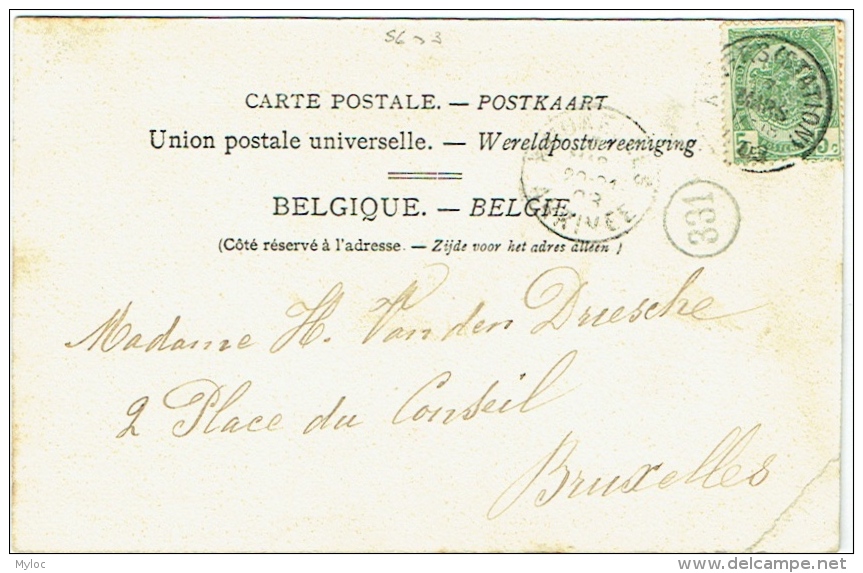 S6 → 3
CARTE POSTALE. — POSTKAART
Union postale universelle. — Wereldpostvereeniging
BELGIQUE. — BELGIE.
(Côté réservé à l'adresse. — Zijde voor het adres alléén)
(STATION)
MARS
5 c
ARRIVEE
331
Madame H. Van den Driesche
2 Place du Conseil
Bruxelles
Myloc
delcampe.net